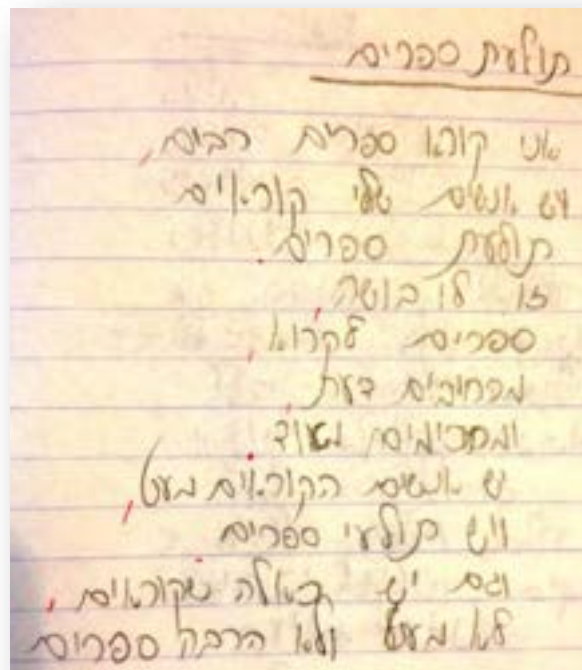 תולעת ספרים
אני קורא ספרים רבים,
יש אנשים שלי קוראים
תולעת ספרים.
זו לו בושה,
ספרים לקרוא,
מרחיבים דעת,
ומחכימים מאוד.
יש אנשים הקוראים מעט,
ויש תולעי ספרים.
וגם יש כאלה שקוראים,
לא מעט ולא הרבה ספרים